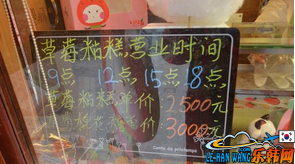 草莓粘糕营业时间
9点 12点 15点 18点
草莓粘糕单价 2500元
价 3000元
Conte de printemps
LE.HAN.WANG
乐韩网